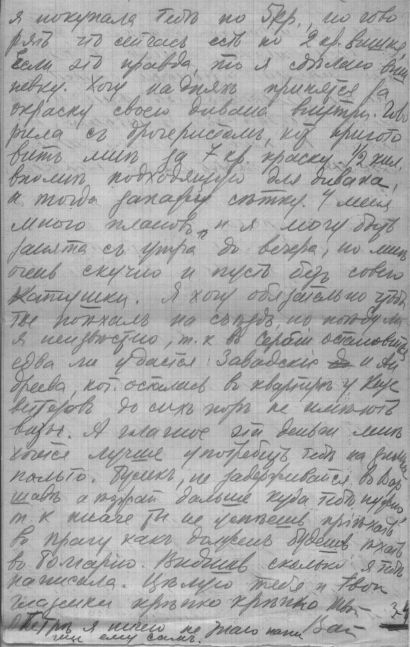 я покупала тебѣ по 5кр., но гово
рятъ что сейчасъ есть по 2 кр. вишня
если это правда, то я сдѣлаю виш
невку. Хочу на дняхъ приняться за
окраску своего дивана внутри. Гово
рила съ дрогеристомъ, кот. пригото
витъ мнѣ за 7 кр. краску 1/2 кил.
вполнѣ подходящую для дивана,
и тогда запарю сѣтку. У меня
много плановъ и я могу быть
занята съ утра до вечера, но мнѣ
очень скучно и пусто безъ своего
Я хочу обязательно чтобы
ты поѣхалъ на съѣздъ, но поѣду ли
я неизвѣстно, т.к. въ остановиться
едва ли удастся. Завадскіе и
кот. остались въ квартирѣ у
до сихъ поръ не имѣютъ
визы. А главное эти деньги мнѣ
хочется лучше употребить тебѣ на зимнее
пальто. не задерживайся въ Вар
шавѣ а поѣзжай дальше куда тебѣ нужно
т.к. иначе ты не успѣешь пріѣхать
въ Прагу какъ долженъ будешь ѣхать
въ Болгарію. Видишь сколько я тебѣ
написала. Цѣлую тебя и твои
глазенки крѣпко крѣпко
я ничего не
ему самъ.